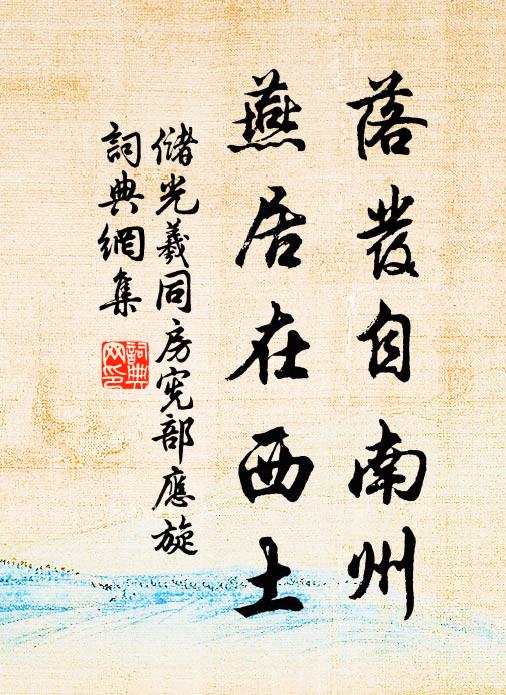 落發自南州
燕居在西土
儲光羲同房憲部應旋
詞典網集
詞典
网印